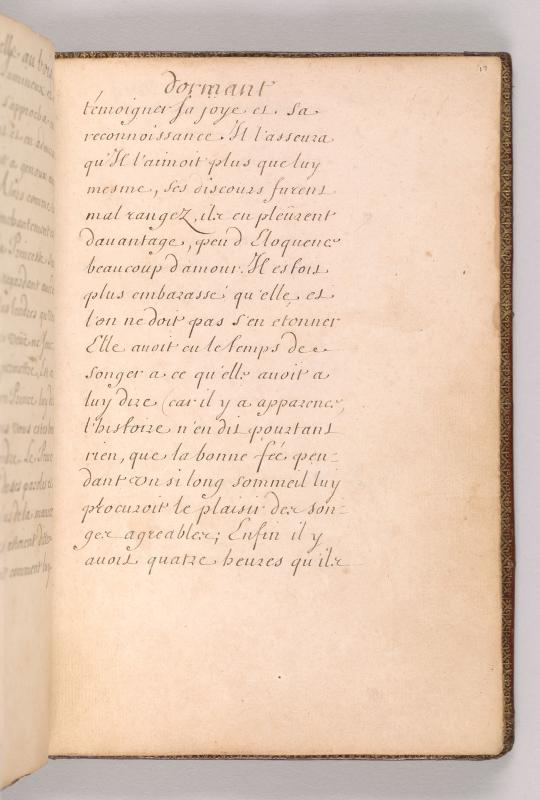 dormant
témoigner sa joye et sa
reconnoissance. Il l'asseura
qu'Il l'aimoit plus que luy
mesme, ses discours furent
mal rangez, ils en pleûrent
davantage, peu d'Eloquence
beaucoup d'amour. Il estoit
plus embarassé qu'elle, et
l'on ne doit pas s'en étonner
Elle avoit eu le temps de
songer a ce qu'elle avoit a
luy dire (car il y a apparence,
l'histoire n'en dit pourtant
rien, que la bonne fée pen-
dant un si long sommeil luy
procuroit le plaisir des son-
ges agreables; Enfin il y
avoit quatre heures qu'ils